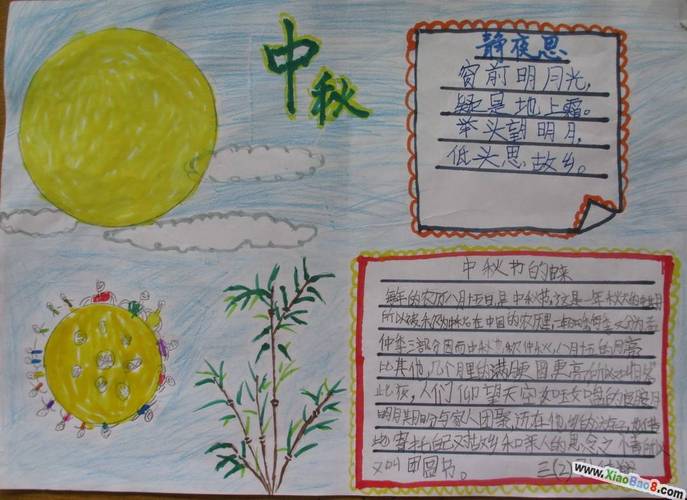 中秋
静夜思
窗前明月光,
疑是地上霜。
举头望明月,
低头思故乡。
中秋节的由来
每年的农历八月十五日,是中秋节。这是一年秋天的
所以被称为中秋。在中国的农历里,一年
三部分因而中秋也称仲秋。八月十五的月亮
比其他几个月里的满月更圆更
此夜,人们仰望天空如玉
明月期盼与家人团聚,
寄托自己对故乡和亲人的思念之情所以
又叫团圆节。
三(2)
www.XiaoBao8.com